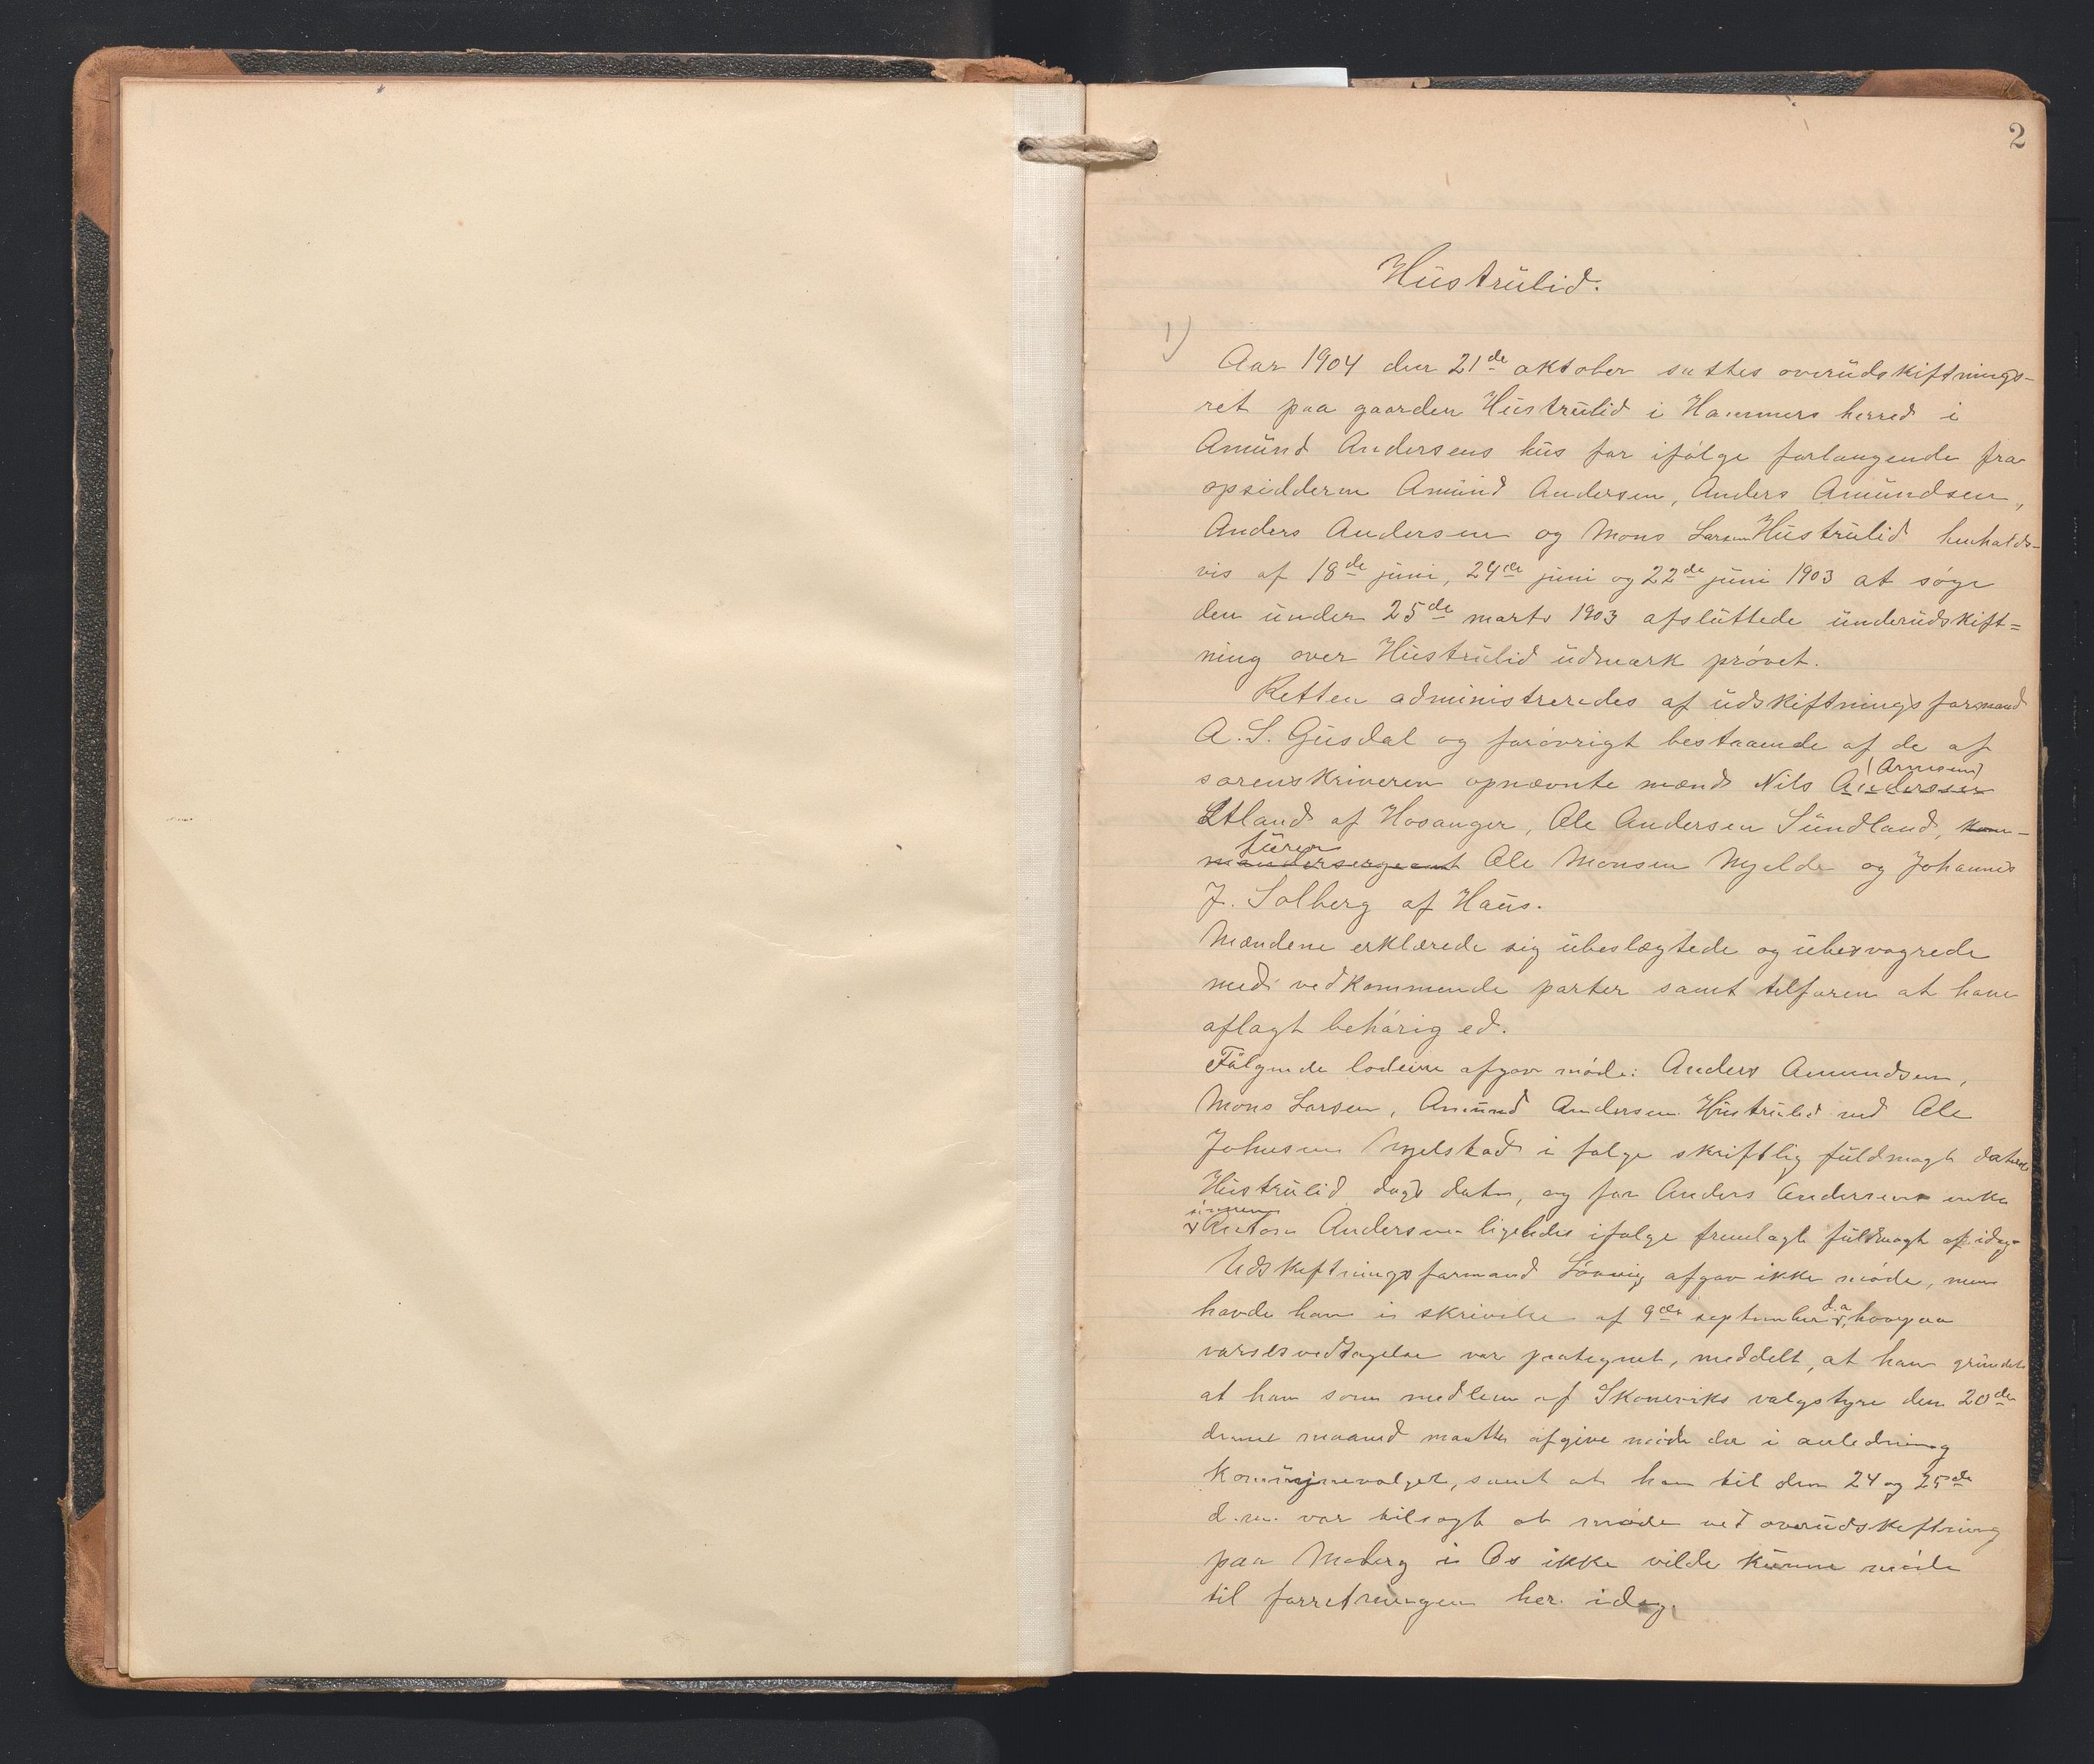 2
Hustrulid.
1)
Aar 1904 den 21de oktober sattes overudskiftnings-
ret paa gaarden Hustrulid i Hammers herred i
Amund Andersens hus for ifølge forlangende fra
opsidderne Amund Andersen, Anders Amundsen,
Anders Andersen og Mons Larsen Hustrulid henholds-
vis af 18de juni, 24de juni og 22de juni 1903 at søge
den under 25de marts 1903 afsluttede underudskift=
ning over Hustrulid udmark prøvet.
Retten administreredes af udskiftningsformand
A. S. Gusdal og forøvrigt bestaaende af de af
(Arnesen)
sorenskriveren opnævnte mænd Nils Andersen
Ætland af Hosanger, Ole Andersen Sundland, kom-
furer
mandersergeant Ole Monsen Mjelde og Johannes
J. Solberg af Haus.
Mændene erklærede sig ubeslægtede og ubesvogrede
med vedkommende parter samt tilforen at have
aflagt behørig ed.
Følgende lodeiere afgav møde: Anders Amundsen,
Mons Larsen, Amund Andersen Hustrulid ved Ole
Johnsen Mjelstad i følge skriftlig fuldmagt dateret
Hustrulid dags dato, og for Anders Andersens enke
sønnen
Anton Andersen ligeledes ifølge fremlagt fuldmagt af idag.
Udskiftningsformand Lønvig afgav ikke møde, men
havde han i skrivelse af 9de september d.a, hvorpaa
varselsvedtagelse var paategnet, meddelt, at han grundet
at han som medlem af Skoneviks valgstyre den 20de
denne maaned maatte afgive møde der i anledning
Kommunevalget, samt at han til den 24 og 25de
d.m. var tilsagt at møde ved overudskiftning
paa Moberg i Os ikke vilde kunne møde
til forretningen her idag.